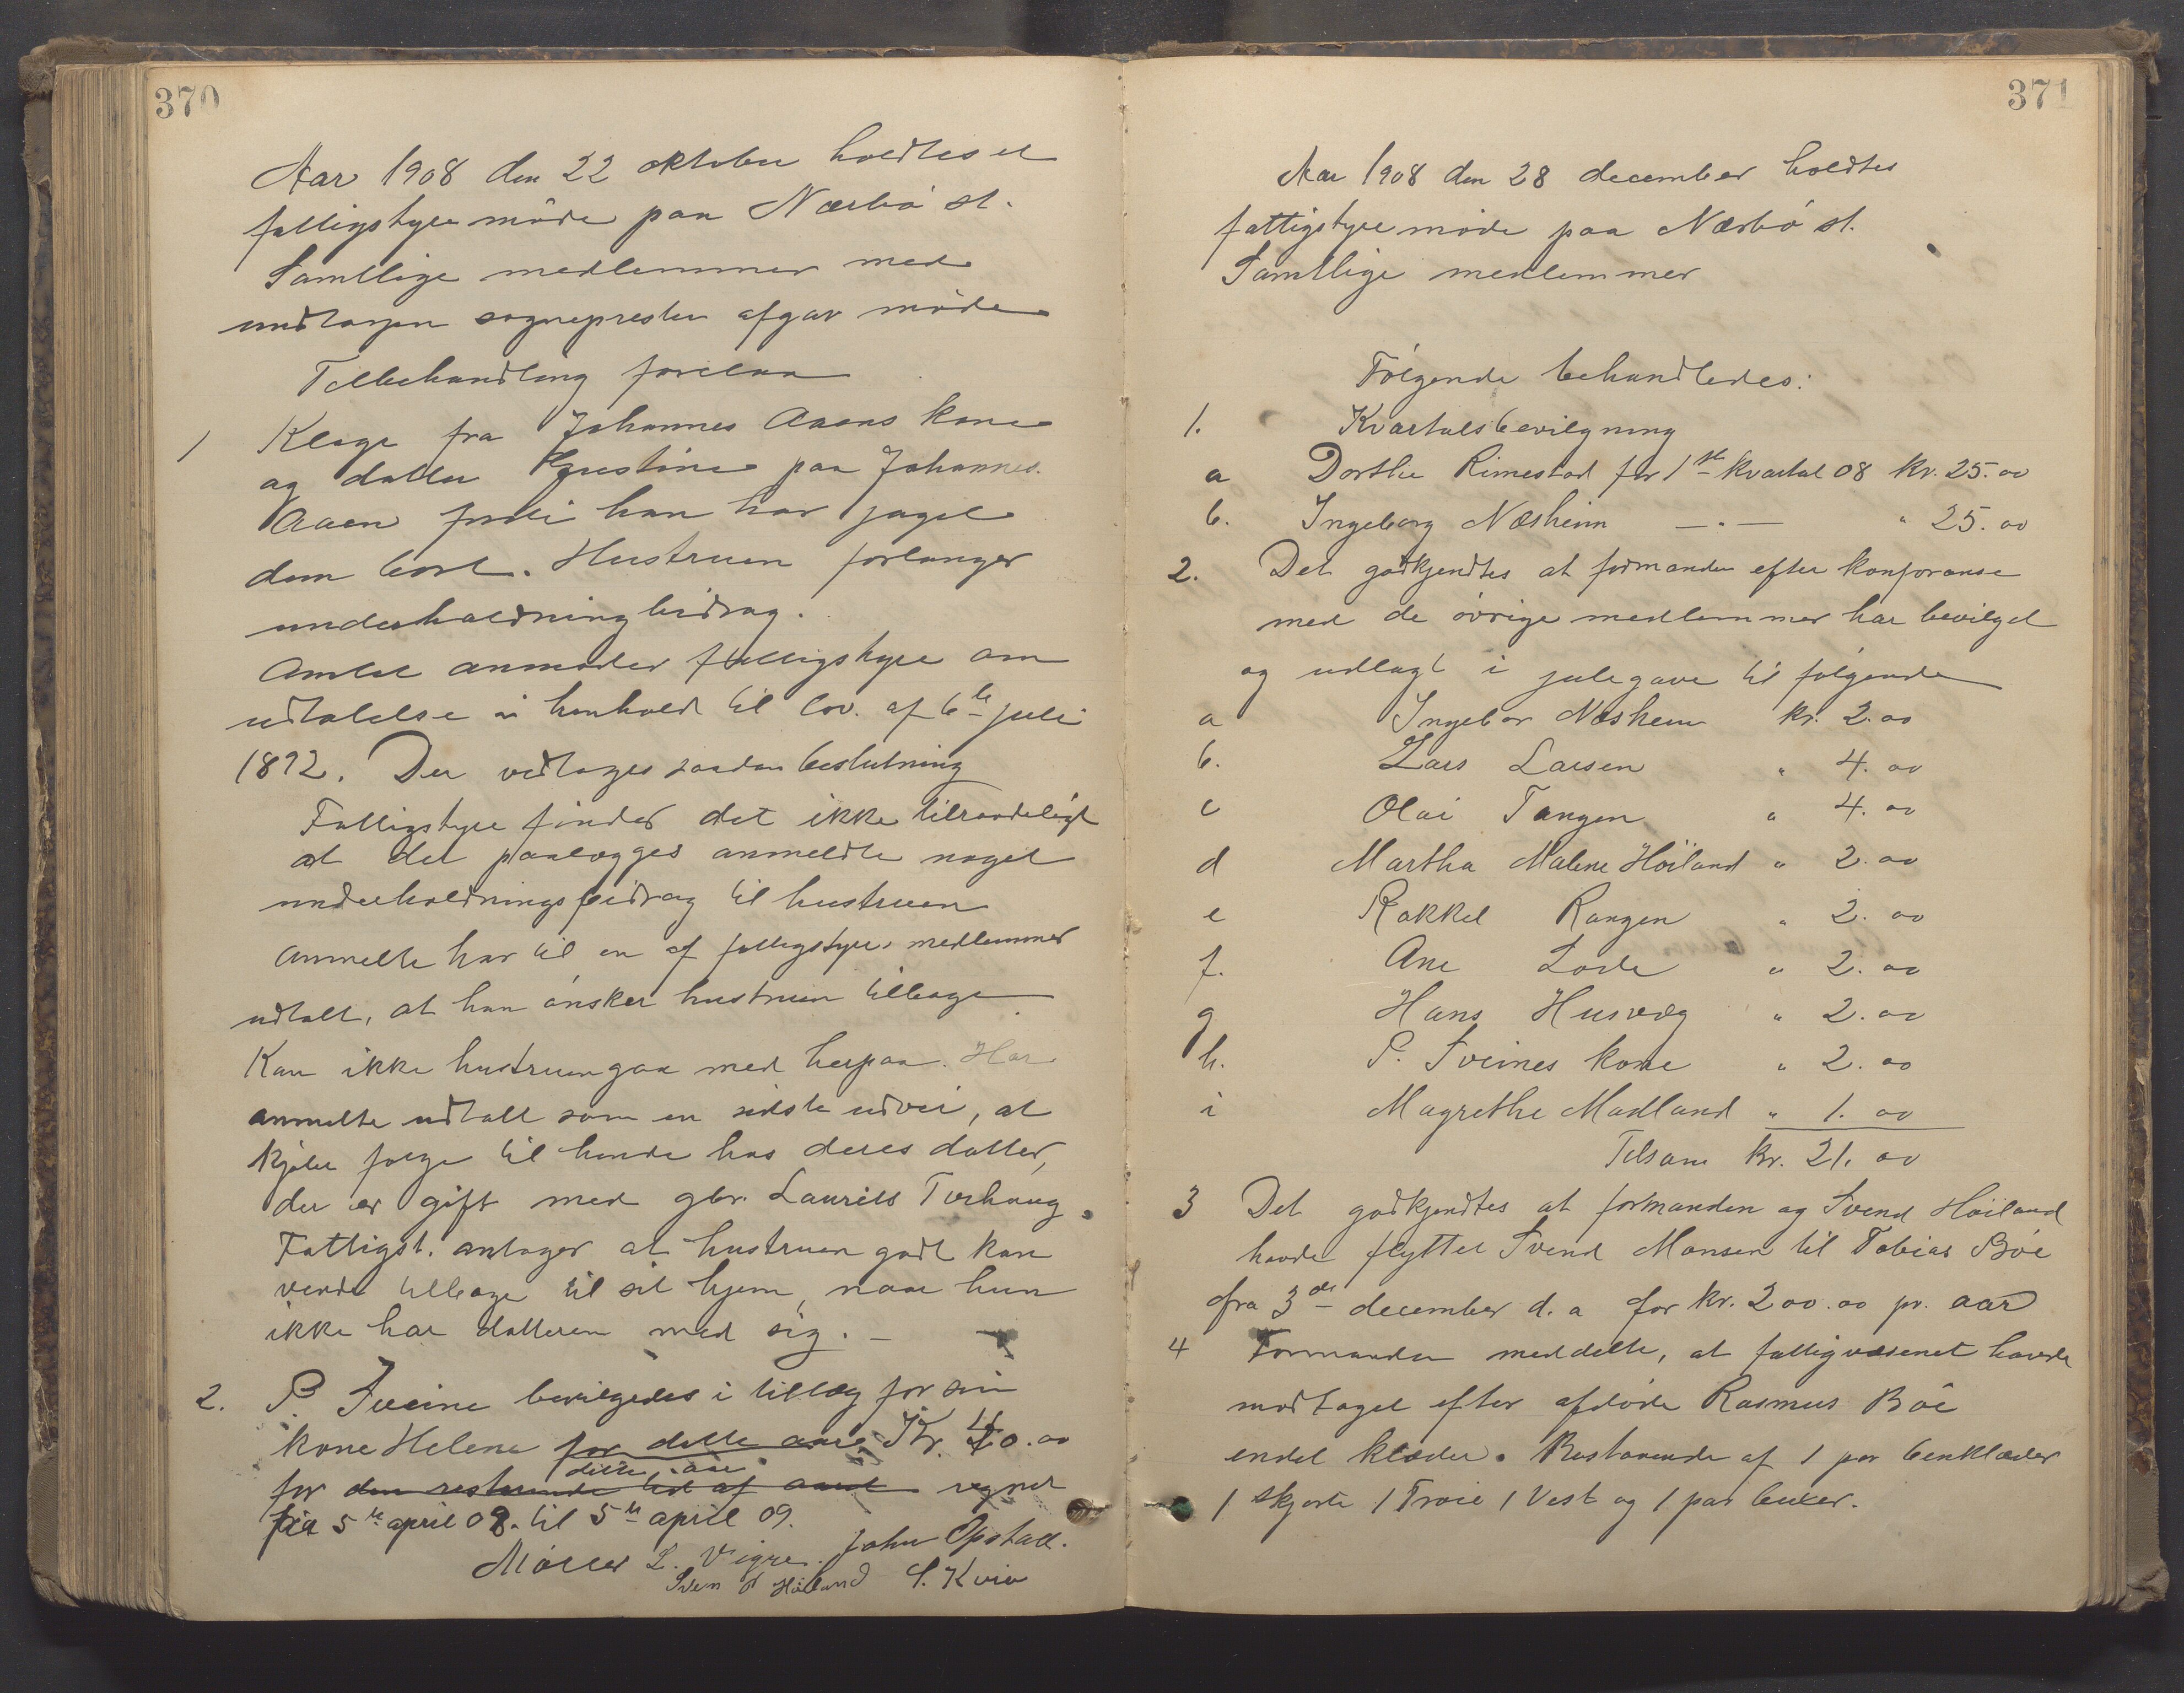 370
Aar 1908 den 22 oktober holdtes et
fattigstyremöde paa Nærbö st.
Samtlige medlemmer med
undtagen sogneprestn afgav möde
Tilbehandling forelaa
1 Klage fra Johannes Aaens kone
og datter Gustine paa Johannes
Aaen fordi han har jaget
dem bort. Hustruen forlanger
underholdningbidrag.
Amtet anmoder fattigstyre om
udtalelse i henhold til lov. af 6te juli
1892. Der vedtages saadan beslutning
Fattigstyre finder det ikke tilraadeligt
at det paalægges anmeldte noget
underholdningsbidrag til hustruen
Anmelte har til en af fattigstyres medlemmer
udtalt, at han önsker hustruen tilbage
Kan ikke hustruen gaa med herpaa. Har
anmelte udtalt som en sidste udvei, at
kjöbe forge til hende hos deres datter,
der er gift med gbr. Laurits Tverhaug.
Fattigst. antager at hustruen godt kan
vende tilbage til sit hjem, naar hun
ikke har datteren med sig. —
2. P. Sveine bevilgedes i tillæg for sin
kone Helene for dette aar Kr. 40.00
dette aar
for den resterende tid af aaret regnet
fra 5te april 08. til 5te april 09.
Möller L. Vigre. John Opstad.
Sven O Höiland S. Kvia
371
Aar 1908 den 28 december holdtes
fattigstyremöde paa Nærbö st.
Samtlige medlemmer
Fölgende behandledes:
1. Kvartalsbevilgning
a Dorthe Rimestad for 1ste kvartal 08 kr. 25.00
b. Ingeborg Næsheim —〃— " 25.00
2. Det godkjendtes at formanden efter konforanse
med de övrige medlemmer har bevilget
og udlagt i julegave til fölgende
a Ingebor Næsheim kr. 2.00
b. Lars Larsen " 4.00
c Olai Tangen " 4.00
d Martha Malene Höiland " 2.00
e Rakkel Rangen " 2.00
f. Ane Lode " 2.00
g Hans Husvæg " 2.00
h. P. Sveines kone " 2.00
i Magrethe Madland " 1.00
Tilsam kr. 21.00
3 Det godkjendtes at formanden og Svend Höiland
havde flyttet Svend Monsen til Tobias Böe
fra 3de december d. a for kr. 200.00 pr. aar
4 Formanden meddelte, at fattigvæsenet havde
modtaget efter afdöde Rasmus Böe
endel klæder. Bestaaende af 1 par benklæder
1 skjorte 1 Tröie 1 Vest og 1 par buxer.